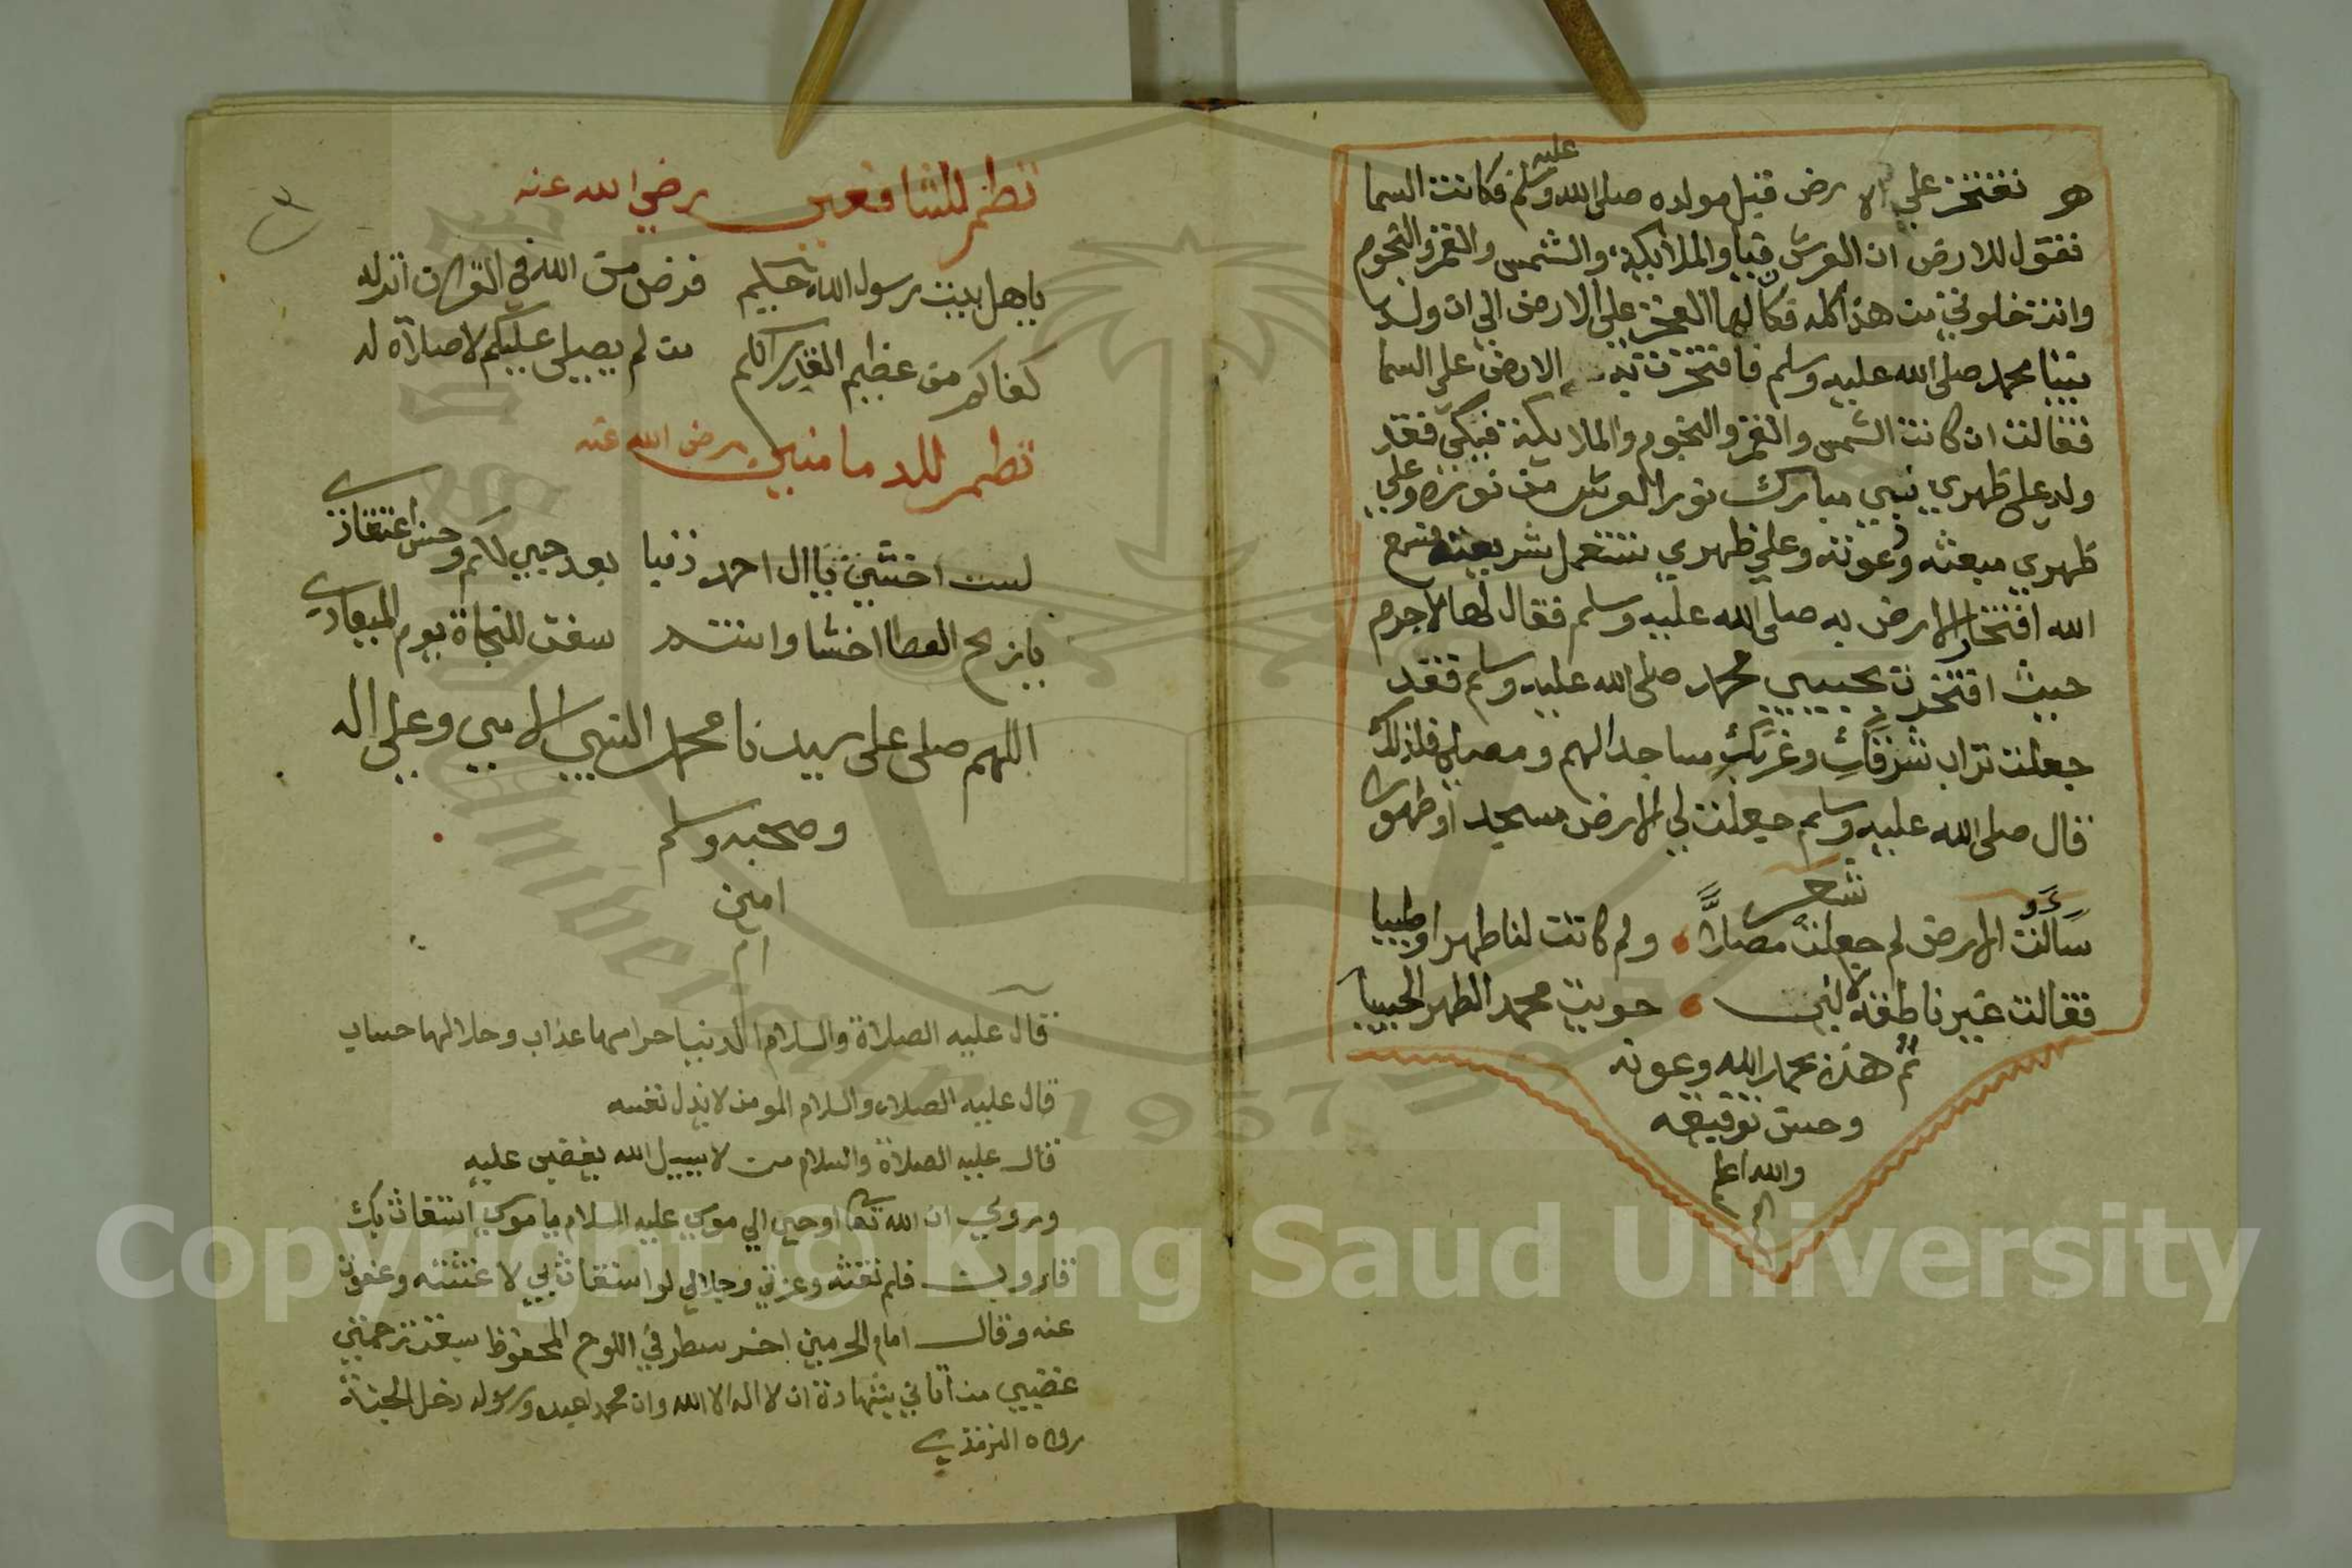 هو تفتخر علي الارض قبل مولده صلى الله عليه وسلم فكانت السما
فتقول للارض ان العرش فيا والملايكة والشمس والقمر والنجوم
وانت خلوتي من هذا كله فكا لها الفخر على الارض الي ان ولد
نبينا محمد صلى الله عليه وسلم فافتخرت الارض علي السما
فقالت ان كانت الشمس والقمر والنجوم والملايكة فيكي فقد
ولد علي ظهري نبي مبارك نور العرش من نوره وعلي
ظهري مبعثه ودعوته وعلي ظهري تستعمل شريعته فسمع
الله افتخار الارض به صلى الله عليه وسلم فقال لها لاجرم
حيث افتخرت بحبيبي محمد صلى الله عليه وسلم فقد
جعلت تراب شرقك وغربك مساجدا لهم ومصلي فلذلك
قال صلى الله عليه وسلم جعلت لي الارض مسجدا وطهورا
شعر
سالت الارض لم جعلت مصلاً ولم كانت لنا طهرا وطيبا
فقالت غير ناطقة لاني حويت محمد الطهر الحبيبا
تم هذه بحمد الله وعونه
وحسن توفيقه
والله اعلم
نظم للشافعي رضي الله عنه
ياهل بيت رسول الله حبكم فرض من الله في القران انزله
كفاكم من عظيم القدر انكم من لم يصلى عليكم لا صلاة له
نظم للدمامنيي رضي الله عنه
لست اخشي ياال احمد ذنبا بعد حبي لكم وحسن اعتقادي
يابحر العطا اخشا وانتم سفن للنجاة يوم الميعادي
اللهم صلى على سيدنا محمد النبي الامي وعلى اله
وصحبه وسلم
امين
قال عليه الصلاة والسلام الدنيا حرامها عذاب وحلالها حساب
قال عليه الصلاة والسلام المومن لا يذل نفسه
قال عليه الصلاة والسلام من لا يسيل الله يغضب عليه
وروي ان الله تعا اوحي الي موسي عليه السلام ياموسي استغاث بك
قارون فلم تغثه وعزتي وجلالي لو استغاث بي لاغثته وعفوت
عنه وقال امام الحرمين اخر سطر في اللوح المحفوظ سبقت رحمتي
غضبي من اتاني بشهادة ان لا اله الا الله وان محمد اعبده ورسوله دخل الجنة
رواه الترمذي
Copyright © King Saud University
1957